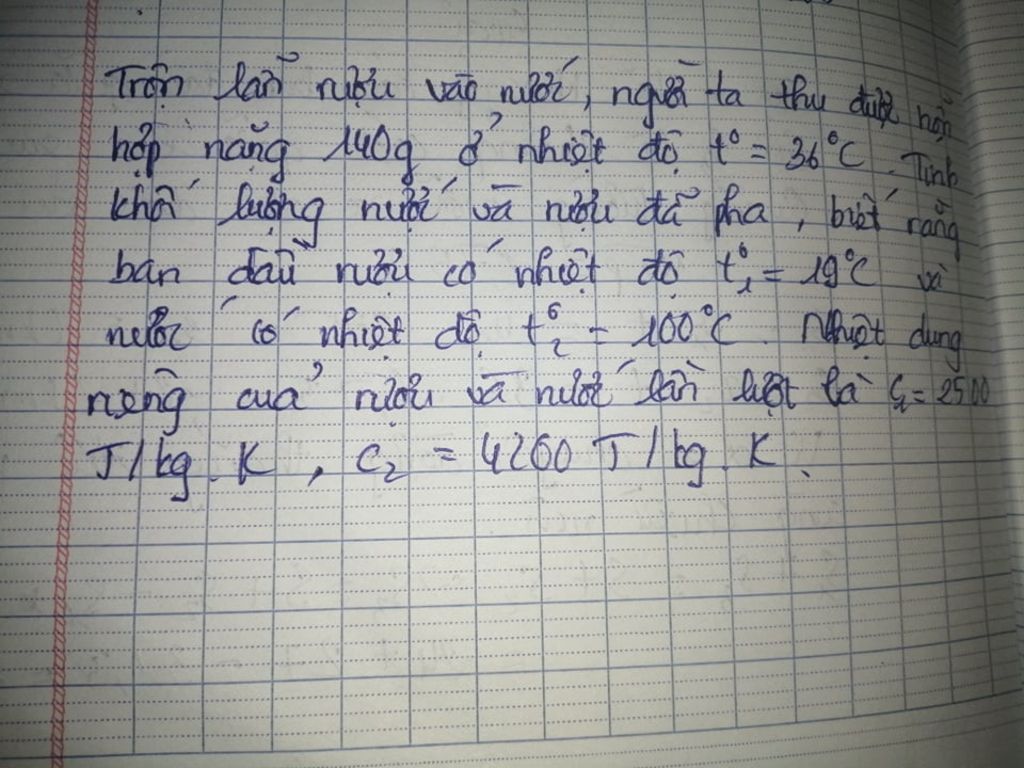 Trộn lẫn rượu vào nước, người ta thu được hỗn
hợp nặng 140g ở nhiệt độ t° = 36°C. Tính
khối lượng nước và rượu đã pha, biết rằng
ban đầu rượu có nhiệt độ t°₁ = 19°C và
nước có nhiệt độ t°₂ = 100°C. Nhiệt dung
riêng của rượu và nước lần lượt là C₁ = 2500
J/kg.K, C₂ = 4200 J/kg.K.